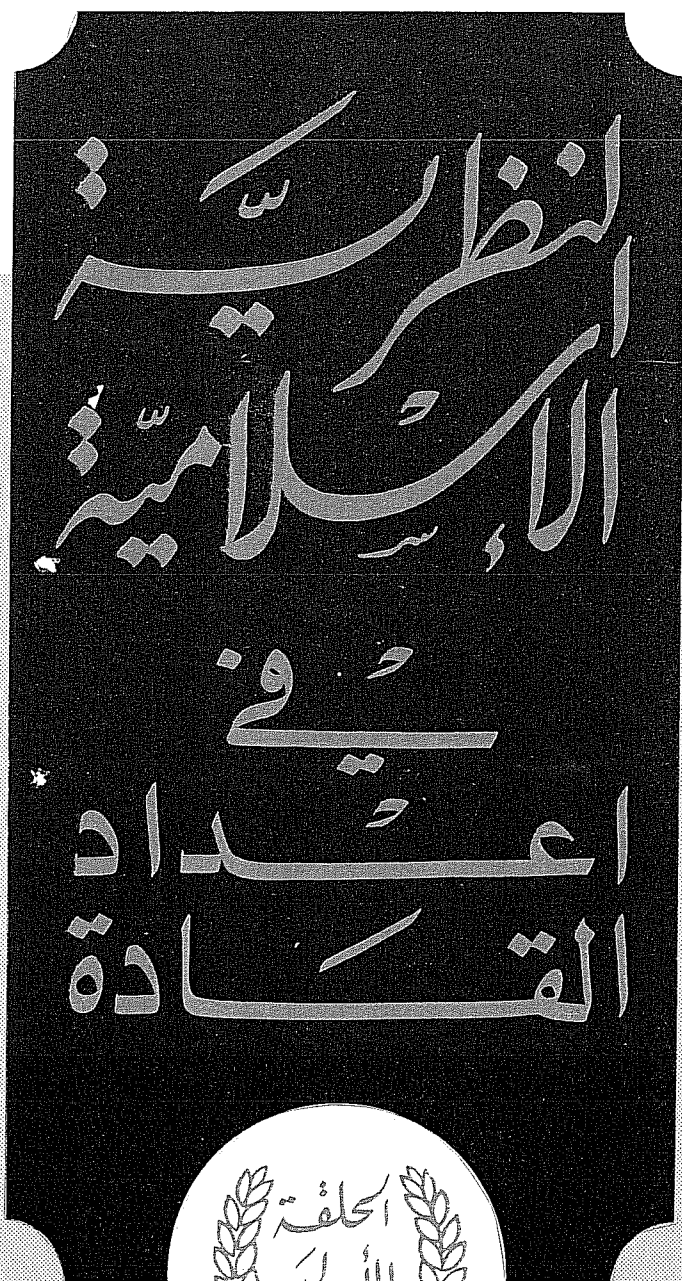 النظريّة
الإسلاميّة
في
اعداد
القادة
الحلقة